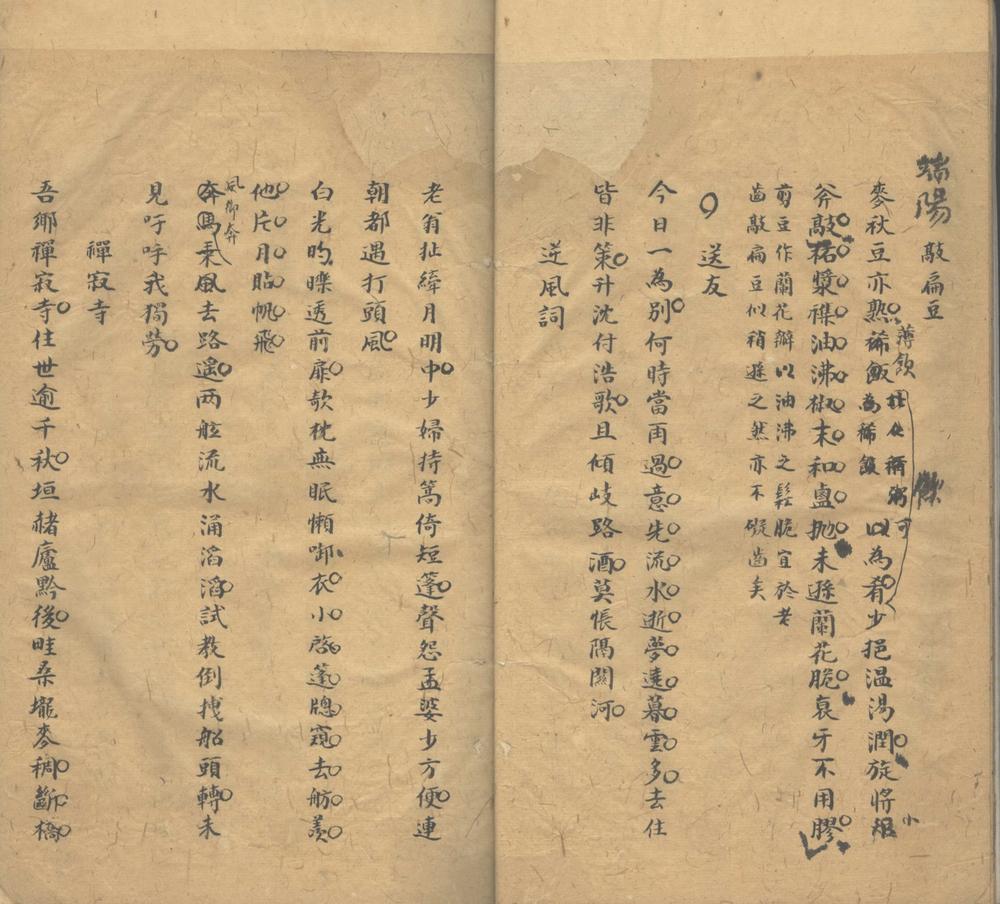 端陽 敲扁豆
麥秋豆亦熟稀飯 以為肴少挹温湯潤旋將
薄飲
為稀飯
小
斧敲 漿 油沸椒末和鹽拋未遜蘭花脆衰牙不用膠
剪豆作蘭花瓣以油沸之鬆脆宜於老
齒敲扁豆似稍遜之然亦不礙齒矣
送友
今日一為別何時當再過意先流水逝夢遶暮雲多去住
皆非策升沈付浩歌且傾岐路酒莫悵隔關河
逆風詞
老翁扯縴月明中少婦持篙倚短篷聲怨孟婆少方便連
朝都遇打頭風
白光昀爍透前扉欹枕無眠懶 衣小啟篷牕窺去舫羨
他片月貼帆飛
風御奔
奔馬乘風去路遙兩舷流水涌滔滔試教倒拽船頭轉未
見吁呼我獨勞
禪寂寺
吾鄉禪寂寺住世逾千秋垣赭廬黔後畦桑壠麥稠斷橋